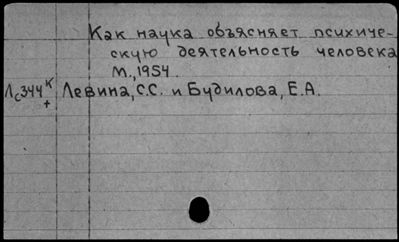 Как наука объясняет психиче-
скую деятельность человека
М., 1954.
Лс344к Левина, С.С. и Будилова, Е.А.
+